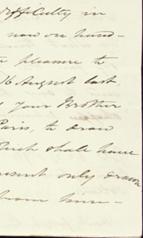 difficulty in
now on hand-
pleasure to
16 August last,
your Brother
Paris, to draw
which shall have
present only drawn
from him-